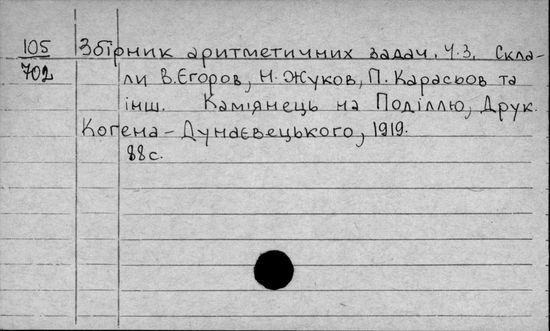 105 Збірник аритметичних задач. Ч.3. Скла-
702 ли В.Єгоров, Н.Жуков, П.Карасьов та
інш. Каміянець на Поділлю, Друк.
Когена-Дунаєвецького, 1919.
88с.